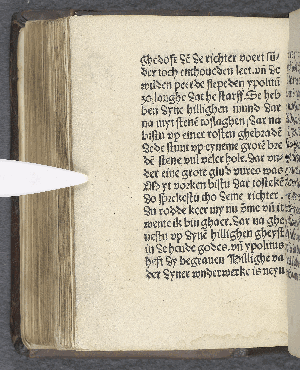 ghedoft Dē de richter voert sū-
der toch enthouden leet. vñ de
wilden perde slepeden ypolitū
so langhe dat he starff. Se heb
ben dyne hillighen mund dar
na myt stenē toslaghen / dar na
bistu vp einer rosten ghebradē
dede stunt vp eyneme grote bre
dē stene vul veler holr. dar vn-
der eine grote glud vures was
Myt vorken bistu dar
do sprekestu tho deme richter.
du rodde keer my nu vme vñ it
wente ik bin ghaer. dar na ghe
uestu vp dynē hillighen gheyst
in de hende godes. vñ ypolitus
heft dy begrauen Hillighe va
der dyner wnderwerke is neyn